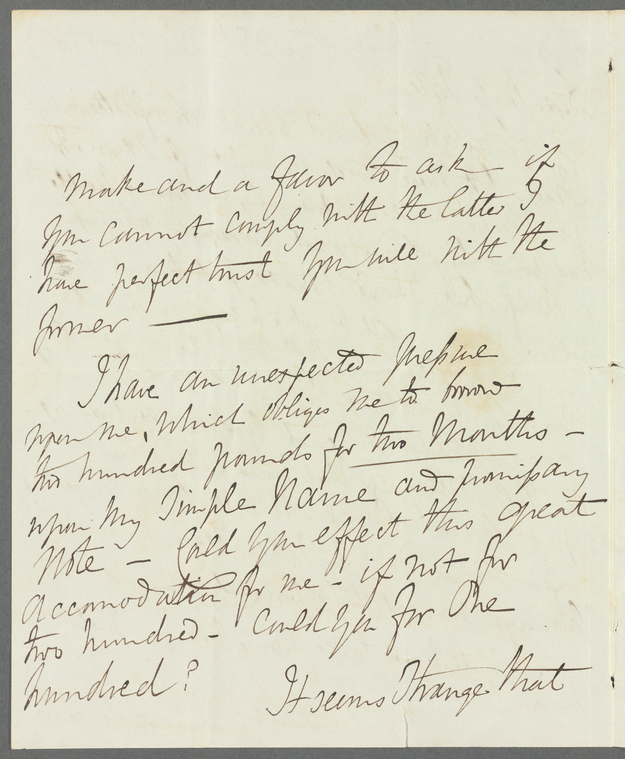 make and a favor to ask – if
you cannot comply with the latter I
have perfect trust you will with the
former —
I have an unexpected pressure
upon me, which obliges me to borrow
two hundred pounds for two Months –
upon my Simple Name and promissary
Note – Could you effect this great
accomodation for me – if not for
two hundred – could you for One
hundred?
It seems strange that